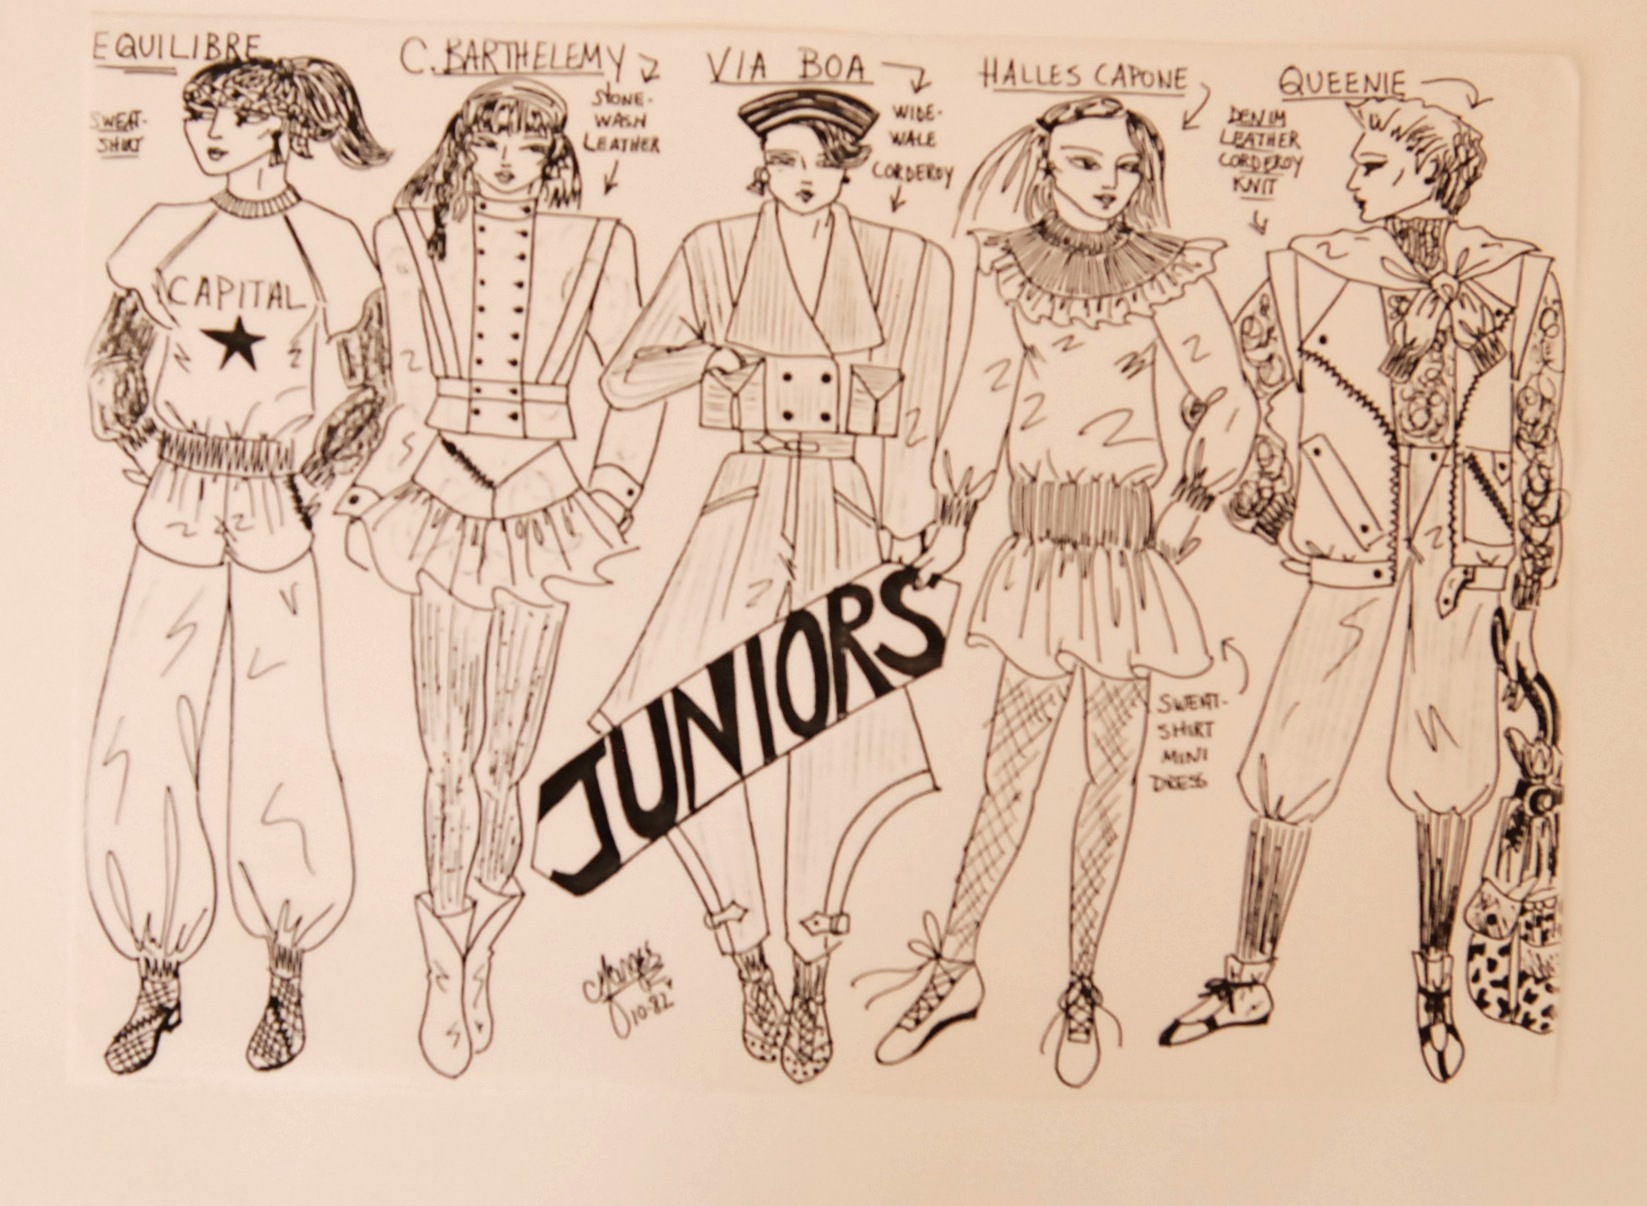 EQUILIBRE
SWEAT-
SHIRT
CAPITAL
C. BARTHELEMY
STONE-
WASH
LEATHER
VIA BOA
WIDE-
WALE
CORDEROY
HALLES CAPONE
DENIM
LEATHER
CORDEROY
KNIT
QUEENIE
SWEAT-
SHIRT
MINI
DRESS
JUNIORS
10-82